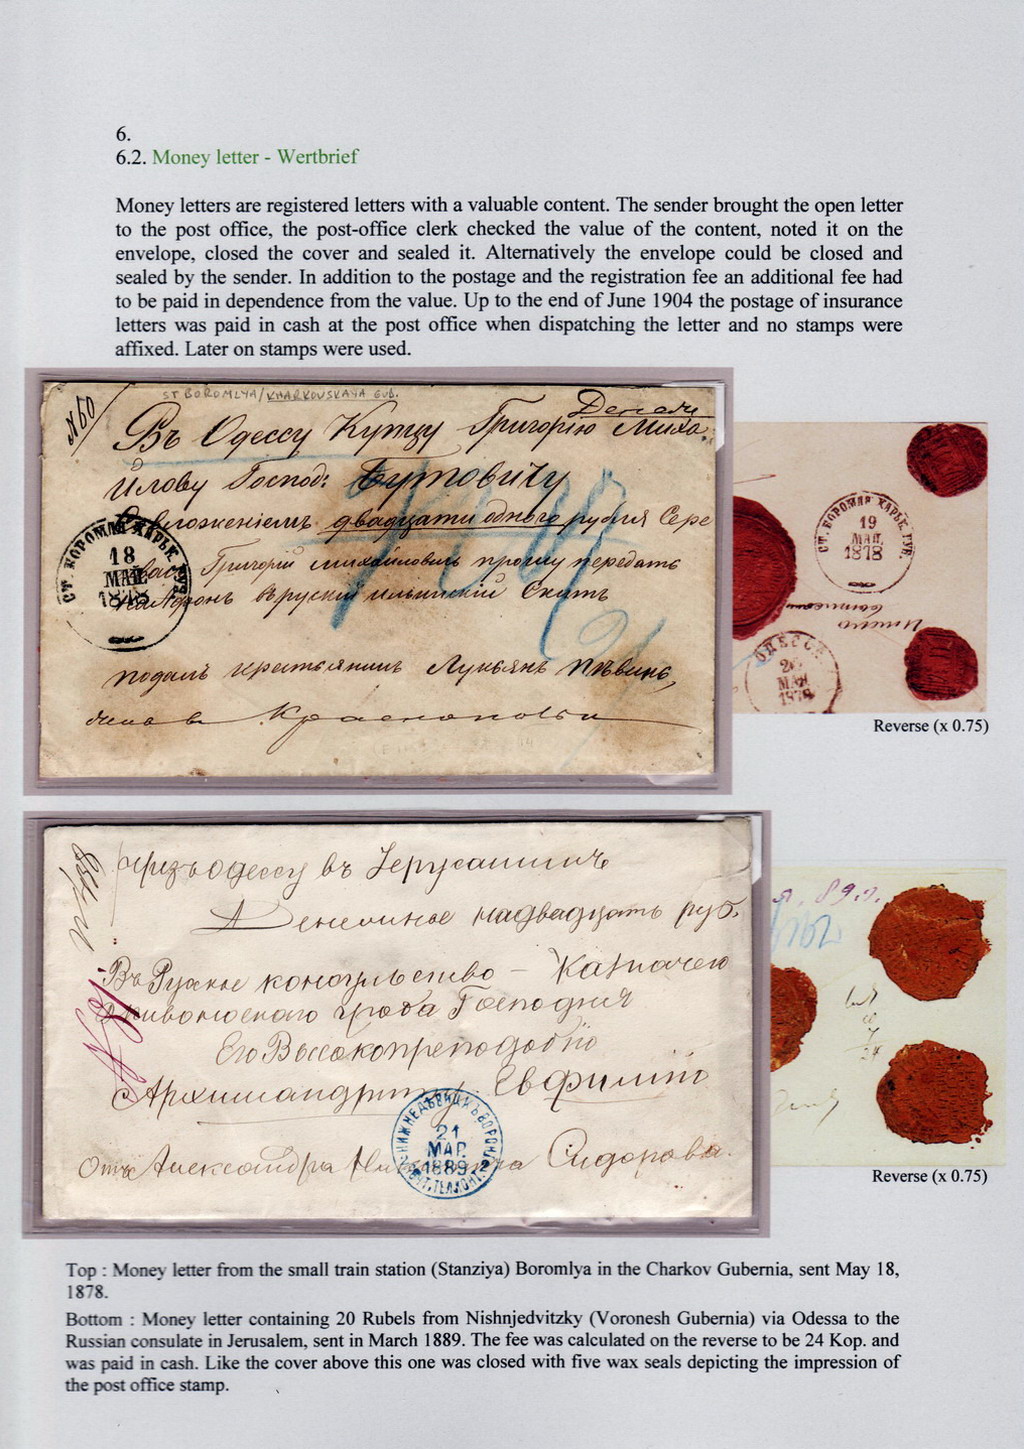 6.
6.2. Money letter - Wertbrief
Money letters are registered letters with a valuable content. The sender brought the open letter
to the post office, the post-office clerk checked the value of the content, noted it on the
envelope, closed the cover and sealed it. Alternatively the envelope could be closed and
sealed by the sender. In addition to the postage and the registration fee an additional fee had
to be paid in dependence from the value. Up to the end of June 1904 the postage of insurance
letters was paid in cash at the post office when dispatching the letter and no stamps were
affixed. Later on stamps were used.
ST BOROMLYA/KHARKOVSKAYA GUB.
№60
Въ Одессу Купцу Григорію Миха
йлову Господ: Бутовичу
двадцати одного рубля Сере
Григорій Михайловичь прошу передать
въ руский ильинский Скить
подаль крестьянинь Лукьянь
СТ. БОРОМЛЯ ХАРЬК. ГУБ.
18
МАЯ
1878
СТ. БОРОМЛЯ ХАРЬК. ГУБ.
19
МАЯ
1878
ОДЕССА
20
МАЯ
1878
Reverse (x 0.75)
чрезъ Одессу въ Іерусалимъ
Денежное на двадцать руб.
Въ Руское консульство - Казначею
Живоноснаго гроба Господня
Его Высокопреподобію
Архимандриту Евфимію
Отъ Александра Сидорова.
НИЖНЕДѢВИЦКЪ ВОРОН.
21
МАР.
1889
2
ПОЧТ. ТЕЛ. КОНТ.
89 г.
Reverse (x 0.75)
Top : Money letter from the small train station (Stanziya) Boromlya in the Charkov Gubernia, sent May 18,
1878.
Bottom : Money letter containing 20 Rubels from Nishnjedvitzky (Voronesh Gubernia) via Odessa to the
Russian consulate in Jerusalem, sent in March 1889. The fee was calculated on the reverse to be 24 Kop. and
was paid in cash. Like the cover above this one was closed with five wax seals depicting the impression of
the post office stamp.